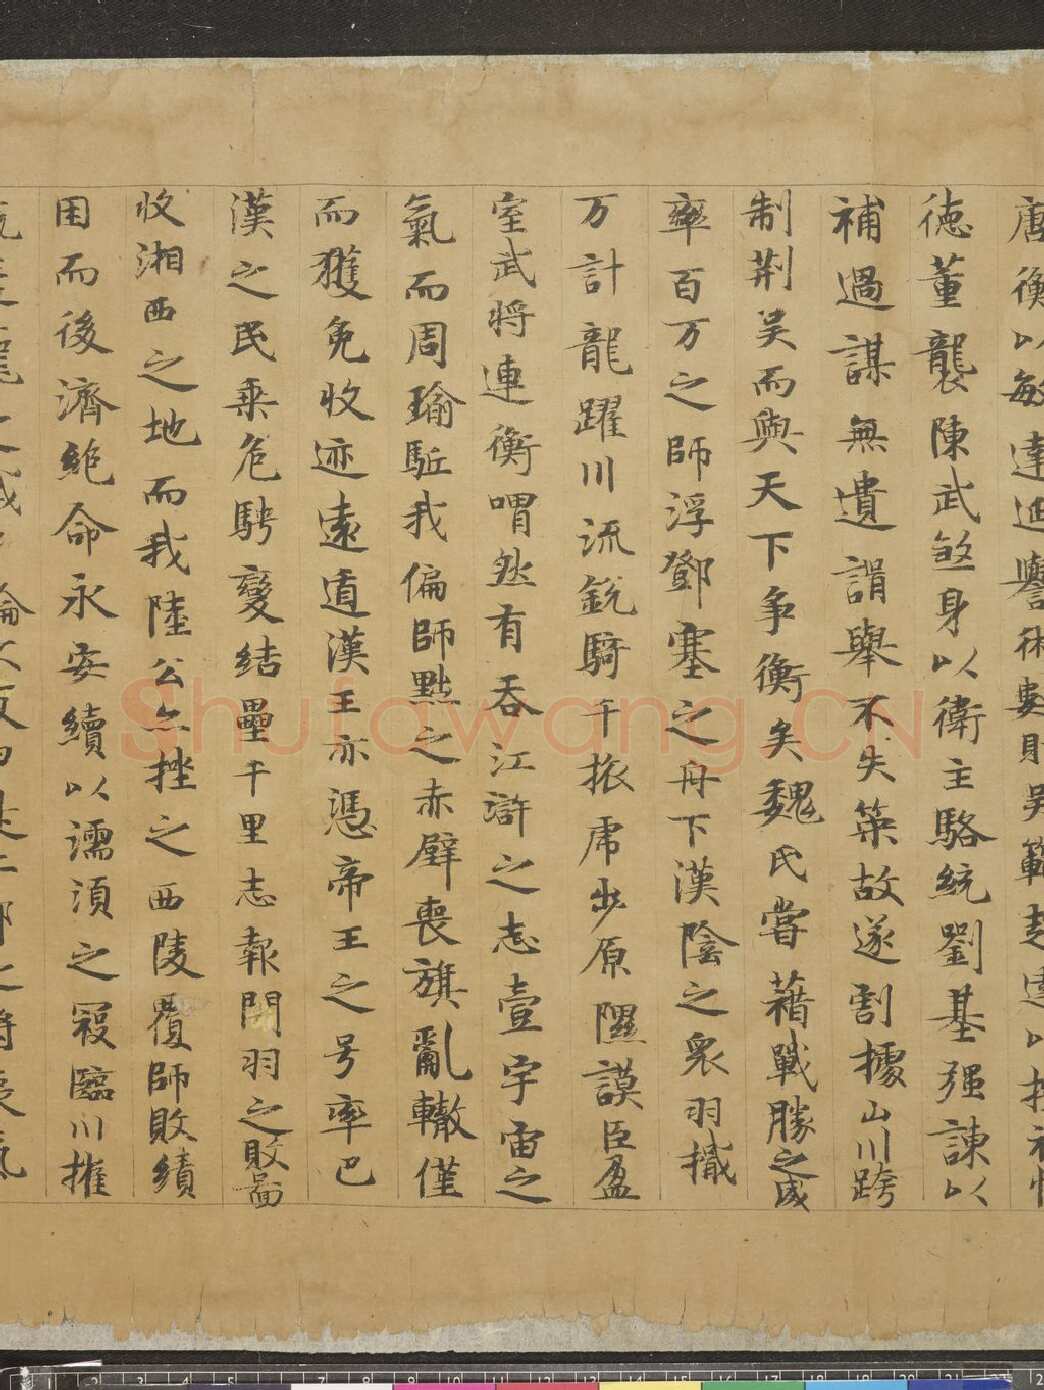 唐衡以敏達延譽術數則吳範趙達以
德董襲陳武煞身以衛主駱統劉基强諫以
補過謀無遺諝舉不失筞故遂割據山川跨
制荆吴而與天下争衡矣魏氏嘗藉戰勝之威
率百万之師浮鄧塞之舟下漢陰之衆羽檝
万計龍躍川流銳騎千旅虎步原隰謨臣盈
室武将連衡喟然有吞江滸之志壹宇宙之
氣而周瑜駈我偏師黜之赤壁喪旗亂轍僅
而獲免收迹遠遁漢王亦憑帝王之号率巴
漢之民乘危騁變結壘千里志報関羽之敗啚
收湘西之地而我陸公亦挫之西陵覆師敗績
困而後濟絶命永安續以濡須之寇臨川摧
Shufawang.CN